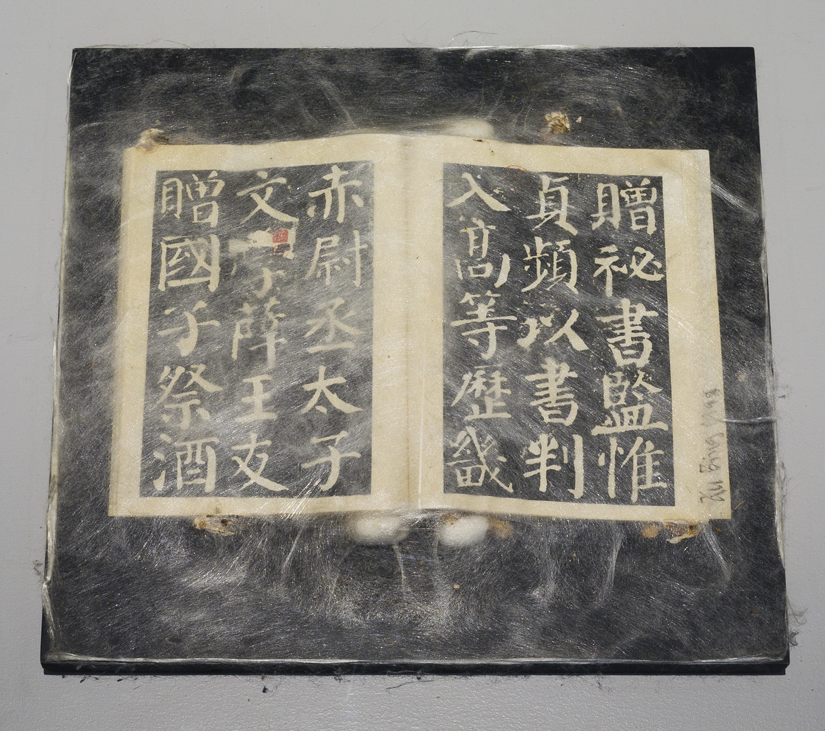 贈祕書監惟
貞頻以書判
入髙等歷畿
赤尉丞太子
文學薛王友
贈國子祭酒